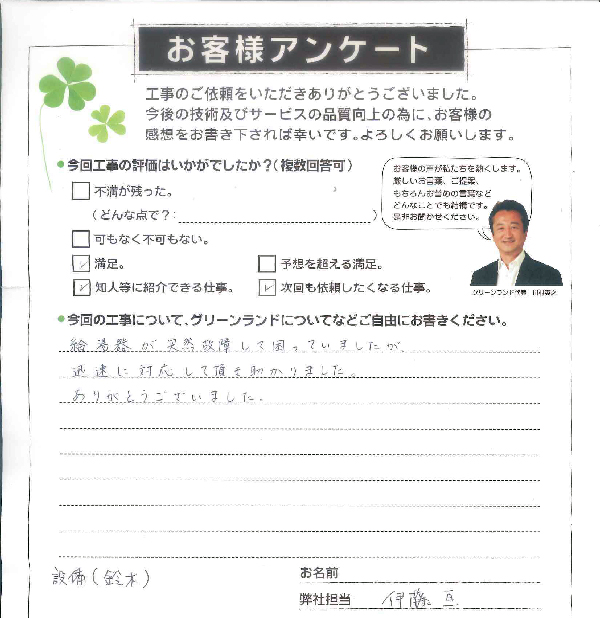 お客様アンケート
工事のご依頼をいただきありがとうございました。
今後の技術及びサービスの品質向上の為に、お客様の
感想をお書き下されば幸いです。よろしくお願いします。
●今回工事の評価はいかがでしたか?(複数回答可)
不満が残った。
(どんな点で?: )
可もなく不可もない。
満足。 予想を超える満足。
知人等に紹介できる仕事。 次回も依頼したくなる仕事。
お客様の声が私たちを熱くします。
厳しいお言葉、ご提案、
もちろんお誉めの言葉など
どんなことでも結構です。
是非お聞かせください。
グリーンランド代表
●今回の工事について、グリーンランドについてなどご自由にお書きください。
給湯器が突然故障して困っていましたが、
迅速に対応して頂き助かりました。
ありがとうございました。
設備(鈴木)
お名前
弊社担当 伊藤 亘